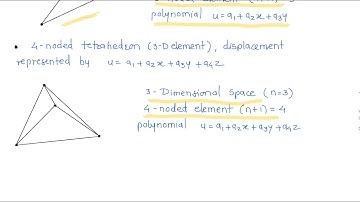 polynomial u = a1 + a2x + a3y
• 4-noded tetrahedron (3-D element), displacement
represented by u = a1 + a2x + a3y + a4z
3-Dimensional space (n=3)
4-noded element (n+1) = 4
polynomial u = a1 + a2x + a3y + a4z